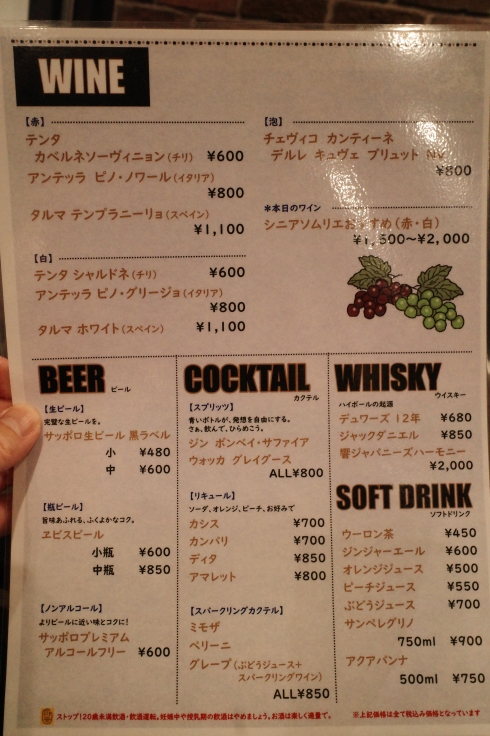 WINE
【赤】
テンタ
カベルネソーヴィニョン(チリ) ¥600
アンテッラ ピノ・ノワール(イタリア)
¥800
タルマ テンプラニーリョ(スペイン)
¥1,100
【白】
テンタ シャルドネ(チリ) ¥600
アンテッラ ピノ・グリージョ(イタリア)
¥800
タルマ ホワイト(スペイン) ¥1,100
【泡】
チェヴィコ カンティーネ
デルレ キュヴェ ブリュット NV
¥800
*本日のワイン
シニアソムリエおすすめ(赤・白)
¥1,500〜¥2,000
BEER ビール
【生ビール】
完璧な生ビールを。
サッポロ生ビール 黒ラベル
小 ¥480
中 ¥600
【瓶ビール】
旨味あふれる、ふくよかなコク。
ヱビスビール
小瓶 ¥600
中瓶 ¥850
【ノンアルコール】
よりビールに近い味とコクに!
サッポロプレミアム
アルコールフリー ¥600
COCKTAIL
カクテル
【スプリッツ】
青いボトルが、発想を自由にする。
さぁ、飲んで、ひらめこう。
ジン ボンベイ・サファイア
ウォッカ グレイグース
ALL¥800
【リキュール】
ソーダ、オレンジ、ピーチ、お好みで
カシス ¥700
カンパリ ¥700
ディタ ¥850
アマレット ¥800
【スパークリングカクテル】
ミモザ
ベリーニ
グレープ(ぶどうジュース+
スパークリングワイン)
ALL¥850
WHISKY
ウイスキー
ハイボールの起源
デュワーズ 12年 ¥680
ジャックダニエル ¥850
響ジャパニーズハーモニー
¥2,000
SOFT DRINK
ソフトドリンク
ウーロン茶 ¥450
ジンジャーエール ¥600
オレンジジュース ¥500
ピーチジュース ¥550
ぶどうジュース ¥700
サンペレグリノ
750ml ¥900
アクアパンナ
500ml ¥750
ストップ!20歳未満飲酒・飲酒運転。妊娠中や授乳期の飲酒はやめましょう。お酒は楽しく適量で。
※上記価格は全て税込み価格となっています